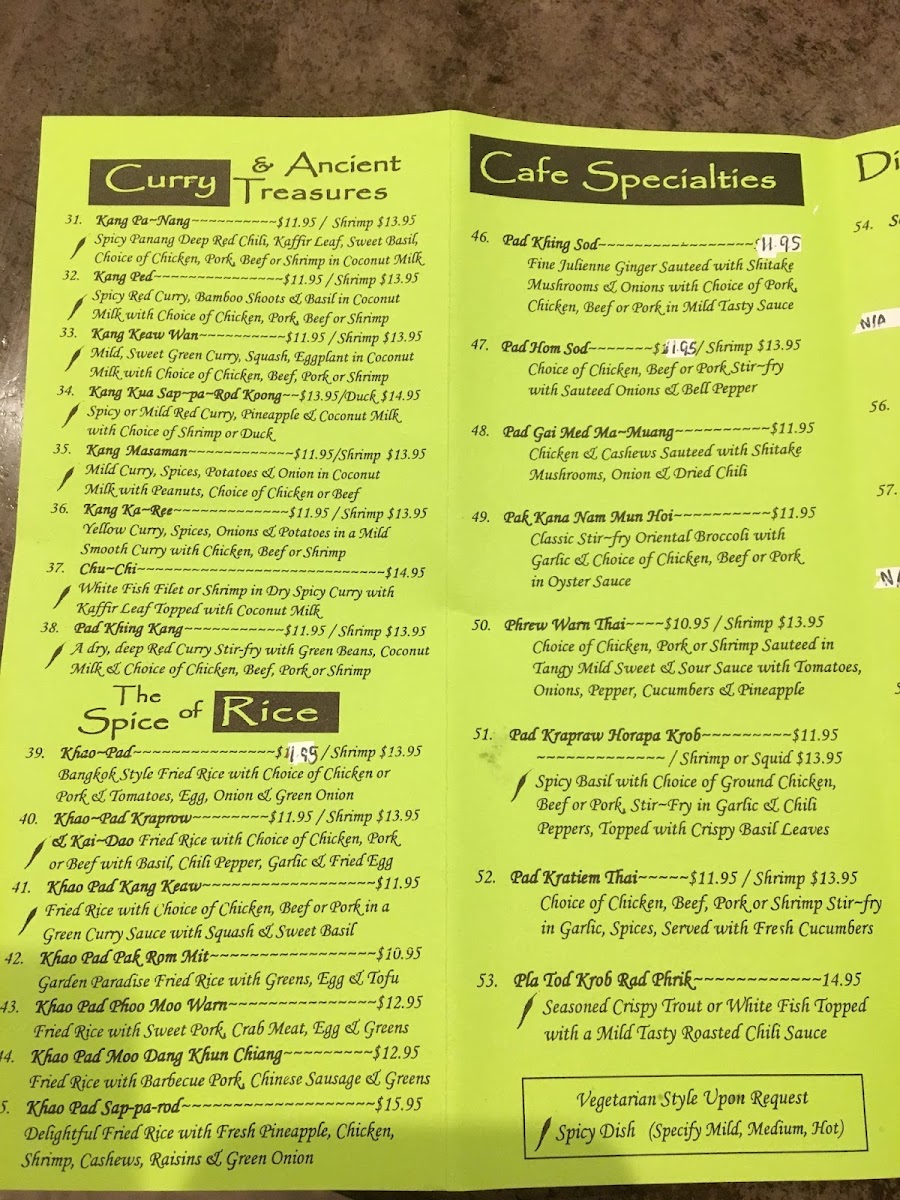 Curry & Ancient Treasures
31. Kang Pa~Nang~~~~~~~~~~$11.95 / Shrimp $13.95
Spicy Panang Deep Red Chili, Kaffir Leaf, Sweet Basil,
Choice of Chicken, Pork, Beef or Shrimp in Coconut Milk
32. Kang Ped~~~~~~~~~~~~~~~$11.95 / Shrimp $13.95
Spicy Red Curry, Bamboo Shoots & Basil in Coconut
Milk with Choice of Chicken, Pork, Beef or Shrimp
33. Kang Keaw Wan~~~~~~~~~~$11.95 / Shrimp $13.95
Mild, Sweet Green Curry, Squash, Eggplant in Coconut
Milk with Choice of Chicken, Beef, Pork or Shrimp
34. Kang Kua Sap~pa~Rod Koong~~$13.95/Duck $14.95
Spicy or Mild Red Curry, Pineapple & Coconut Milk
with Choice of Shrimp or Duck
35. Kang Masaman~~~~~~~~~~~~$11.95/Shrimp $13.95
Mild Curry, Spices, Potatoes & Onion in Coconut
Milk with Peanuts, Choice of Chicken or Beef
36. Kang Ka~Ree~~~~~~~~~~~~~$11.95 / Shrimp $13.95
Yellow Curry, Spices, Onions & Potatoes in a Mild
Smooth Curry with Chicken, Beef or Shrimp
37. Chu~Chi~~~~~~~~~~~~~~~~~~~~~~~~~~~~$14.95
White Fish Filet or Shrimp in Dry Spicy Curry with
Kaffir Leaf Topped with Coconut Milk
38. Pad Khing Kang~~~~~~~~~~~$11.95 / Shrimp $13.95
A dry, deep Red Curry Stir-fry with Green Beans, Coconut
Milk & Choice of Chicken, Beef, Pork or Shrimp
The Spice of Rice
39. Khao~Pad~~~~~~~~~~~~~~~~$11.95 / Shrimp $13.95
Bangkok Style Fried Rice with Choice of Chicken or
Pork & Tomatoes, Egg, Onion & Green Onion
40. Khao~Pad Kraprow~~~~~~~~$11.95 / Shrimp $13.95
& Kai~Dao Fried Rice with Choice of Chicken, Pork
or Beef with Basil, Chili Pepper, Garlic & Fried Egg
41. Khao Pad Kang Keaw~~~~~~~~~~~~~~~~~~$11.95
Fried Rice with Choice of Chicken, Beef or Pork in a
Green Curry Sauce with Squash & Sweet Basil
42. Khao Pad Pak Rom Mit~~~~~~~~~~~~~~~~~$10.95
Garden Paradise Fried Rice with Greens, Egg & Tofu
43. Khao Pad Phoo Moo Warn~~~~~~~~~~~~~~~$12.95
Fried Rice with Sweet Pork, Crab Meat, Egg & Greens
44. Khao Pad Moo Dang Khun Chiang~~~~~~~~~$12.95
Fried Rice with Barbecue Pork, Chinese Sausage & Greens
5. Khao Pad Sap-pa-rod~~~~~~~~~~~~~~~~~~~$15.95
Delightful Fried Rice with Fresh Pineapple, Chicken,
Shrimp, Cashews, Raisins & Green Onion
Cafe Specialties
46. Pad Khing Sod~~~~~~~~~~~~~~~~~~$11.95
Fine Julienne Ginger Sauteed with Shitake
Mushrooms & Onions with Choice of Pork,
Chicken, Beef or Pork in Mild Tasty Sauce
47. Pad Hom Sod~~~~~~~$11.95/ Shrimp $13.95
Choice of Chicken, Beef or Pork Stir~fry
with Sauteed Onions & Bell Pepper
48. Pad Gai Med Ma~Muang~~~~~~~~~~$11.95
Chicken & Cashews Sauteed with Shitake
Mushrooms, Onion & Dried Chili
49. Pak Kana Nam Mun Hoi~~~~~~~~~~$11.95
Classic Stir~fry Oriental Broccoli with
Garlic & Choice of Chicken, Beef or Pork
in Oyster Sauce
50. Phrew Warn Thai~~~~$10.95 / Shrimp $13.95
Choice of Chicken, Pork or Shrimp Sauteed in
Tangy Mild Sweet & Sour Sauce with Tomatoes,
Onions, Pepper, Cucumbers & Pineapple
51. Pad Krapraw Horapa Krob~~~~~~~~~$11.95
~~~~~~~~~~~~~ / Shrimp or Squid $13.95
Spicy Basil with Choice of Ground Chicken,
Beef or Pork, Stir~Fry in Garlic & Chili
Peppers, Topped with Crispy Basil Leaves
52. Pad Kratiem Thai~~~~~$11.95 / Shrimp $13.95
Choice of Chicken, Beef, Pork or Shrimp Stir~fry
in Garlic, Spices, Served with Fresh Cucumbers
53. Pla Tod Krob Rad Phrik~~~~~~~~~~~~~14.95
Seasoned Crispy Trout or White Fish Topped
with a Mild Tasty Roasted Chili Sauce
Vegetarian Style Upon Request
Spicy Dish (Specify Mild, Medium, Hot)
Di
54. S
N/A
56.
57.